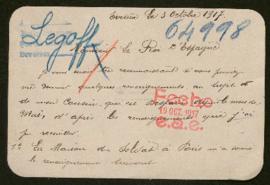 Evreux le 3 Octobre 1917.
64998
Legoff
Monsieur le Roi d'Espagne
Je vous serais reconnaissant si vous pouviez
me donner quelques renseignements au sujet
de mon Cousin, qui est disparu
Mais d'après les renseignements que j'ai
pu recueillir
Fecho
19 OCT. 1917
C.a.C.
1° La Maison du Soldat à Paris m'a donné
le renseignement suivant